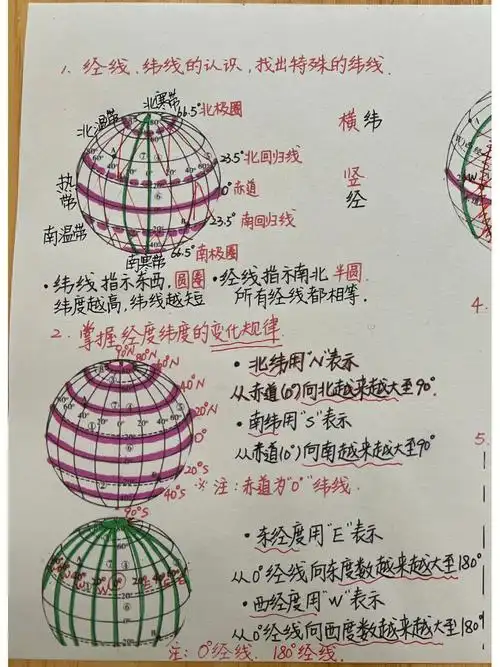 1、经线、纬线的认识,找出特殊的纬线.
北寒带
66.5°北极圈
北温带
横纬
23.5°北回归线
竖经
热带
0°赤道
南温带
23.5°南回归线
南寒带
66.5°南极圈
·纬线指示东西,圆圈
纬度越高,纬线越短
·经线指示南北 半圆.
所有经线都相等.
2、掌握经度纬度的变化规律.
90°N
80°N
60°N
40°N
20°N
0°
20°S
40°S
90°S
·北纬用"N"表示
从赤道(0°)向北越来越大至90°.
·南纬用"S"表示
从赤道(0°)向南越来越大至90°
※注:赤道为"0°"纬线.
·东经度用"E"表示
从0°经线向东度数越来越大至180°
·西经度用"W"表示
从0°经线向西度数越来越大至180°
注:0°经线、180°经线.
4.
5.